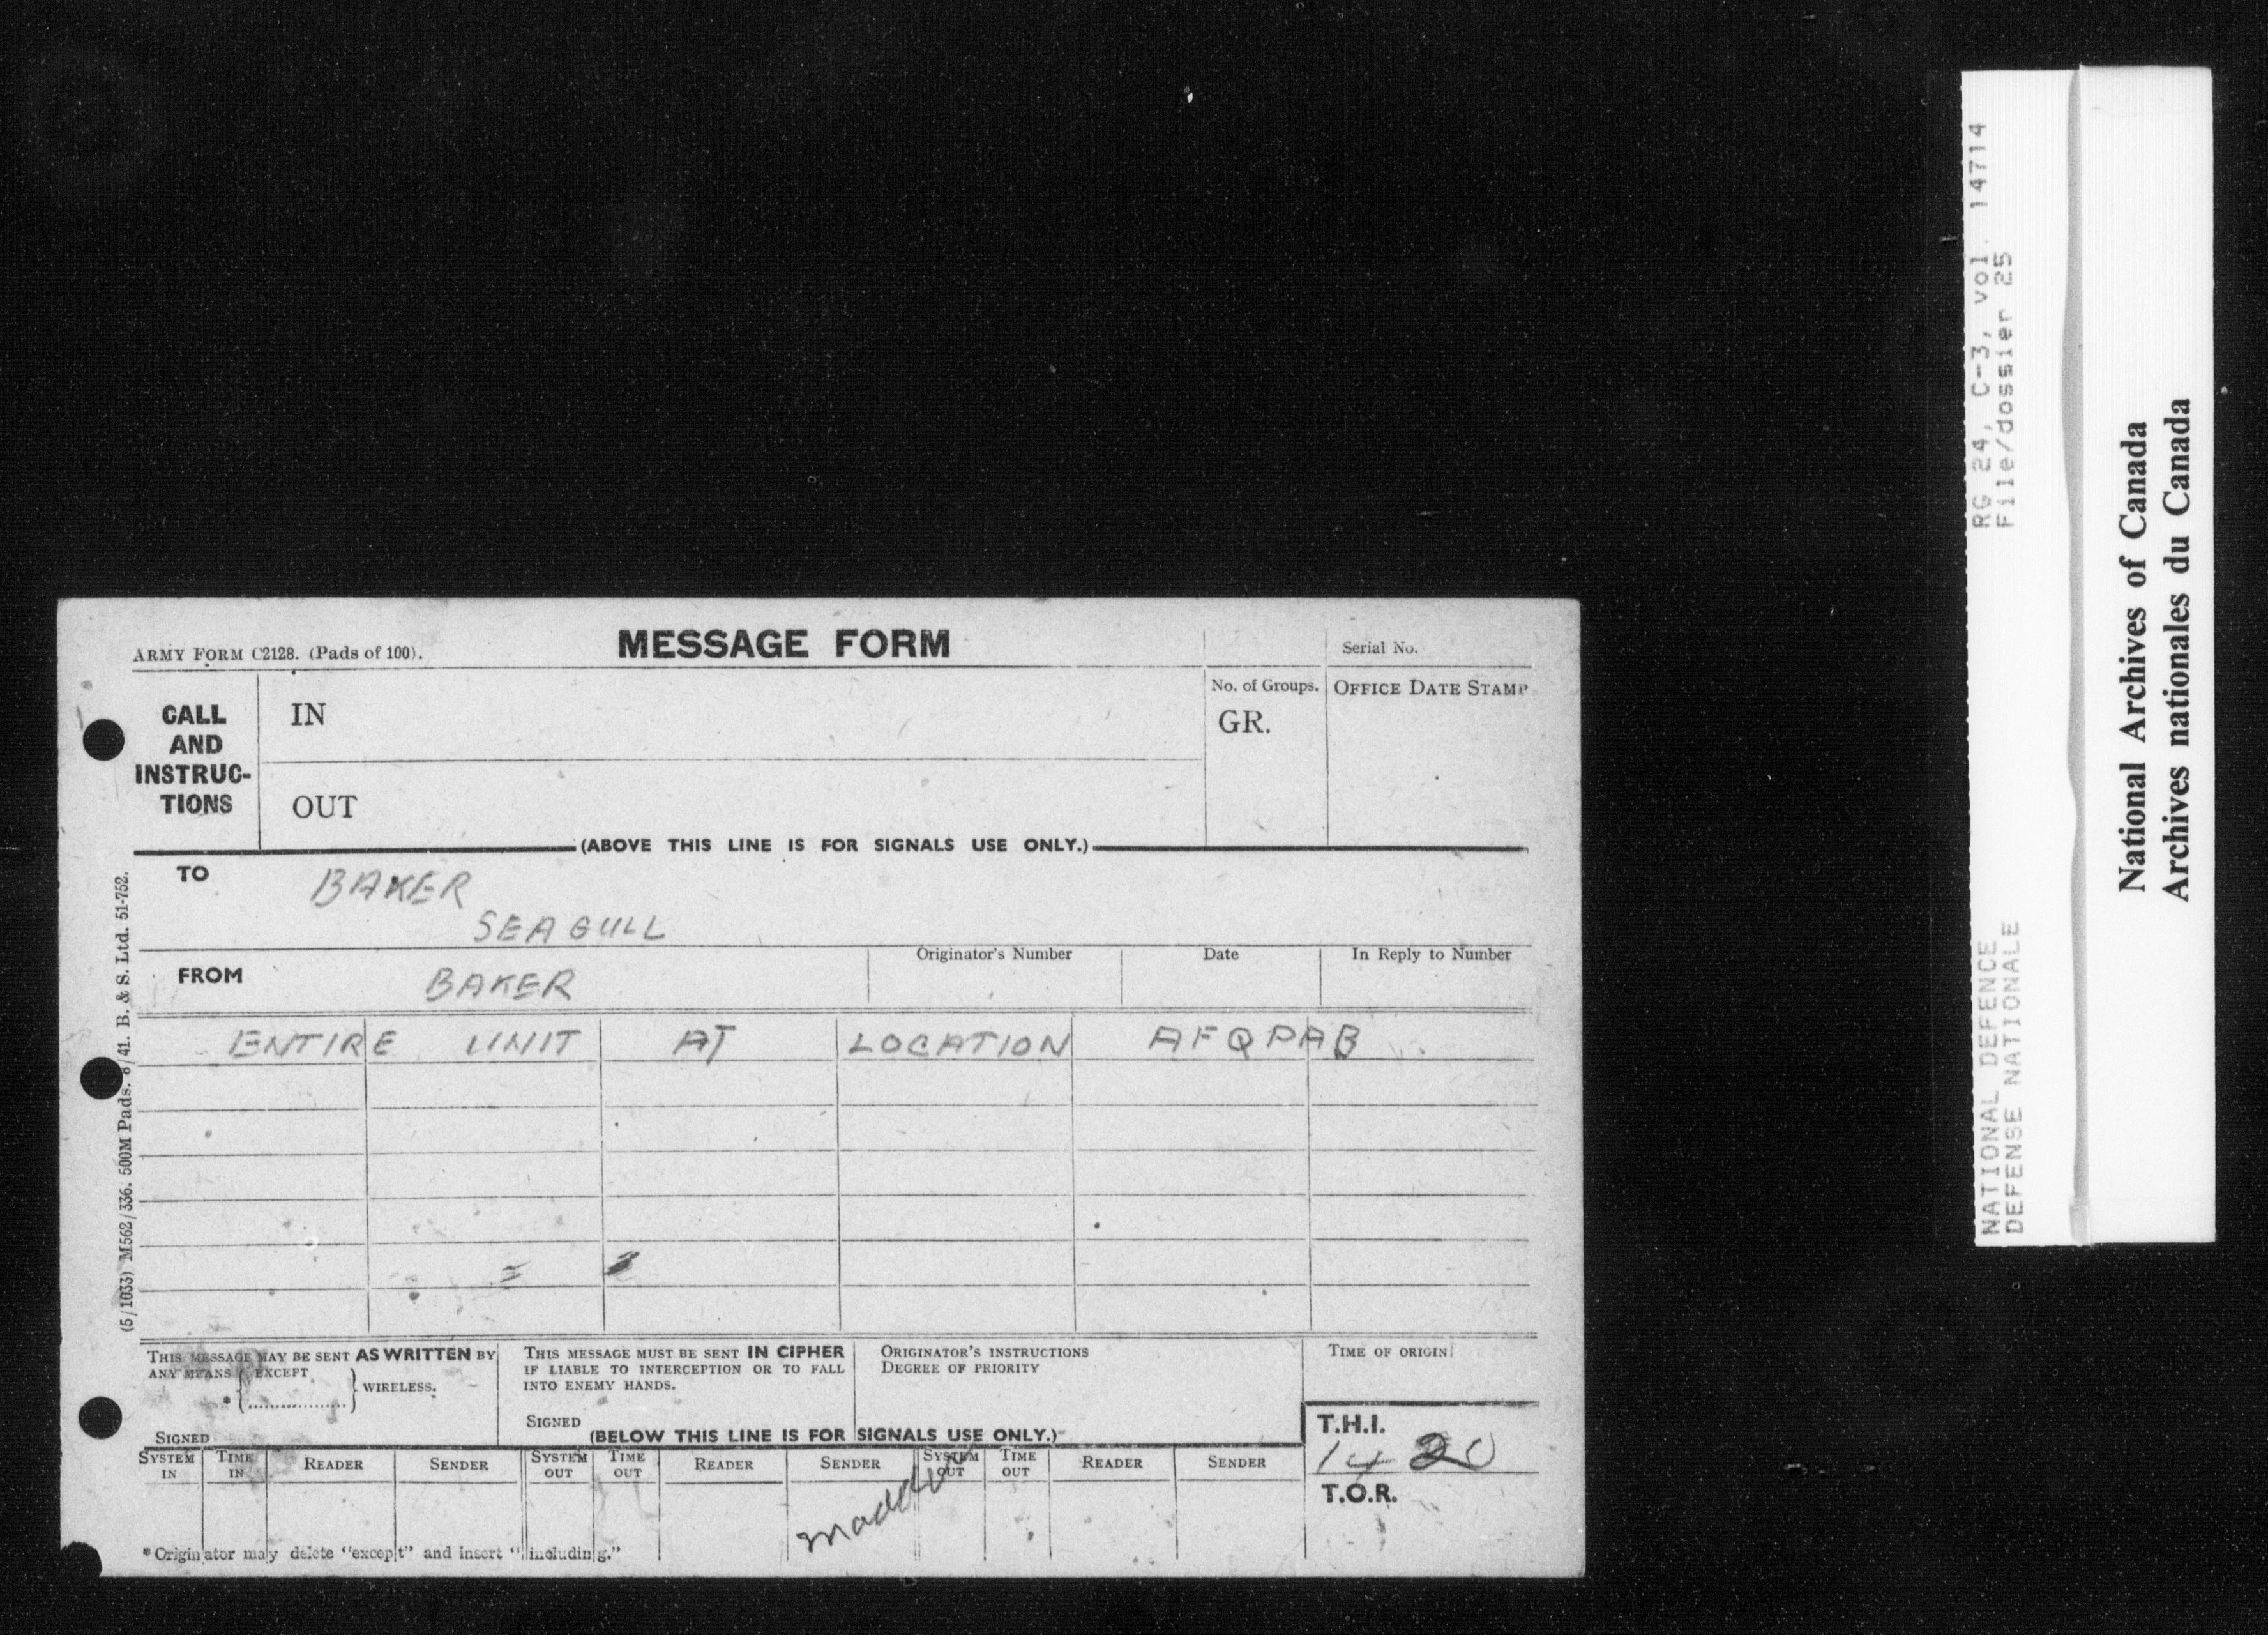 ARMY FORM C2128. (Pads of 100).
MESSAGE FORM
Serial No.
CALL AND INSTRUC-TIONS
IN
OUT
No. of Groups.
GR.
OFFICE DATE STAMP
(ABOVE THIS LINE IS FOR SIGNALS USE ONLY.)
TO
BAKER
SEAGULL
FROM
BAKER
Originator's Number
Date
In Reply to Number
ENTIRE UNIT AT LOCATION AFQPAB
THIS MESSAGE MAY BE SENT AS WRITTEN BY
ANY MEANS EXCEPT
* WIRELESS.
SIGNED
THIS MESSAGE MUST BE SENT IN CIPHER
IF LIABLE TO INTERCEPTION OR TO FALL
INTO ENEMY HANDS.
SIGNED
ORIGINATOR'S INSTRUCTIONS
DEGREE OF PRIORITY
TIME OF ORIGIN
(BELOW THIS LINE IS FOR SIGNALS USE ONLY.)
T.H.I.
1420
T.O.R.
SYSTEM IN
TIME IN
READER
SENDER
SYSTEM OUT
TIME OUT
READER
SENDER
SYSTEM OUT
TIME OUT
READER
SENDER
*Originator may delete "except" and insert "including."
(5/1033) M562/336. 500M Pads. 8/41. B. & S. Ltd. 51-752.
RG 24, C-3, vol. 14714
File/dossier 25
NATIONAL DEFENCE
DEFENSE NATIONALE
National Archives of Canada
Archives nationales du Canada